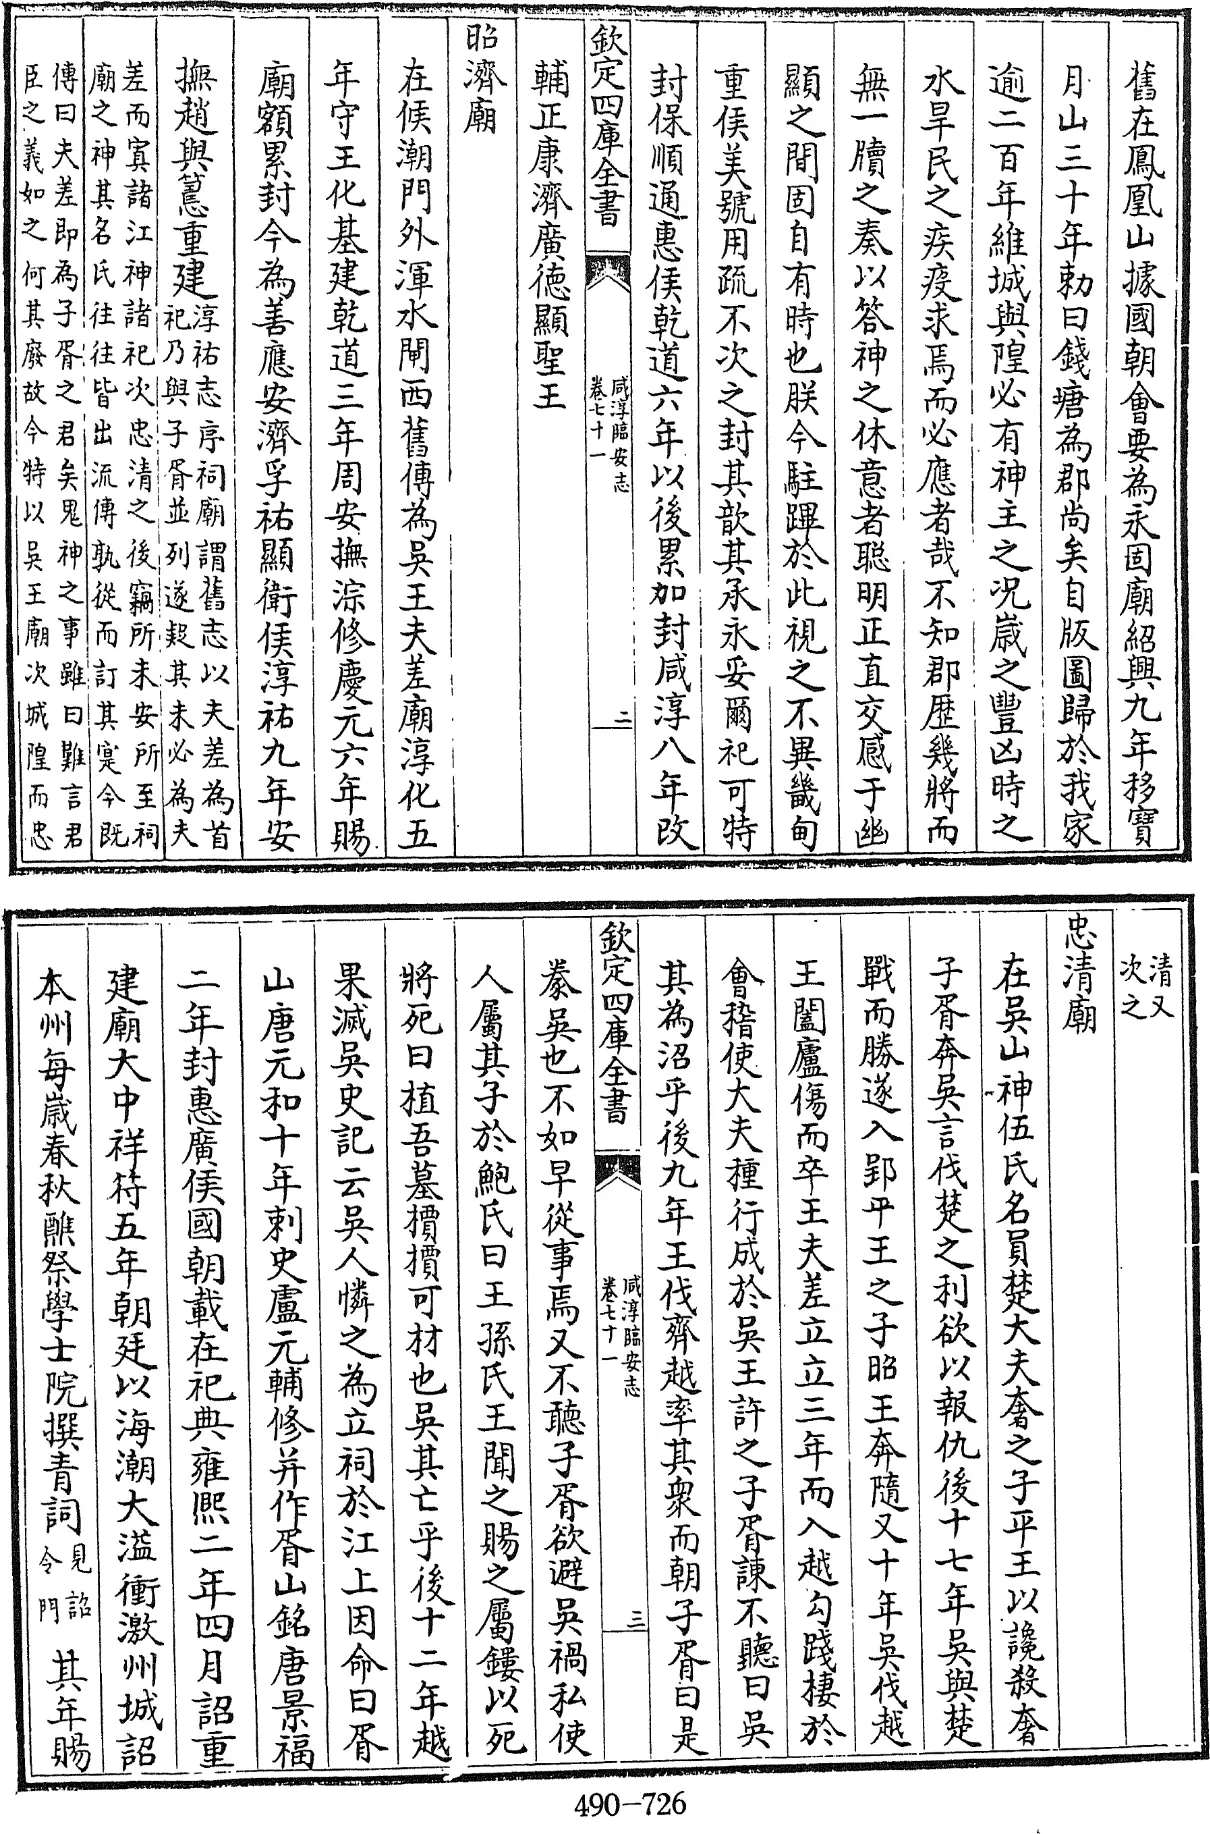 舊在鳳凰山據國朝會要為永固廟紹興九年移寶
月山三十年勅曰錢塘為郡尚矣自版圖歸於我家
逾二百年維城與隍必有神主之况嵗之豐凶時之
水旱民之疾疫求焉而必應者哉不知郡歴幾將而
無一牘之奏以答神之休意者聪明正直交感于幽
顯之間固自有時也朕今駐蹕於此視之不異畿甸
重侯美號用疏不次之封其歆其承永妥爾祀可特
封保順通惠侯乾道六年以後累加封咸淳八年改
欽定四庫全書
咸淳臨安志
卷七十一
二
輔正康濟廣德顯聖王
昭濟廟
在候潮門外渾水閘西舊傳為吳王夫差廟淳化五
年守王化基建乾道三年周安撫淙修慶元六年賜
廟額累封今為善應安濟孚祐顯衛侯淳祐九年安
撫趙與𥲅重建
淳祐志序祠廟謂舊志以夫差為首
祀乃與子胥並列遂疑其未必為夫
差而寘諸江神諸祀次忠清之後竊所未安所至祠
廟之神其名氏往往皆出流傳孰從而訂其寔今既
傳曰夫差即為子胥之君矣鬼神之事雖曰難言君
臣之義如之何其廢故今特以吳王廟次城隍而忠
清又
次之
忠清廟
在吳山神伍氏名員楚大夫奢之子平王以讒殺奢
子胥奔吳言伐楚之利欲以報仇後十七年吳與楚
戰而勝遂入郢平王之子昭王奔隨又十年吳伐越
王闔廬傷而卒王夫差立立三年而入越勾踐棲於
會稽使大夫種行成於吳王許之子胥諫不聽曰吳
其為沼乎後九年王伐齊越率其衆而朝子胥曰是
欽定四庫全書
咸淳臨安志
卷七十一
三
豢吳也不如早從事焉又不聽子胥欲避吳禍私使
人屬其子於鮑氏曰王孫氏王聞之賜之屬鏤以死
將死曰植吾墓檟檟可材也吳其亡乎後十二年越
果滅吳史記云吳人憐之為立祠於江上因命曰胥
山唐元和十年刺史盧元輔修并作胥山銘唐景福
二年封惠廣侯國朝載在祀典雍熙二年四月詔重
建廟大中祥符五年朝廷以海潮大溢衝激州城詔
本州每嵗春秋醮祭學士院撰青詞
見詔
令門
其年賜
490-726